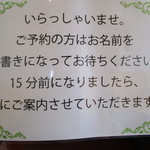 いらっしゃいませ。
ご予約の方はお名前を
書きになってお待ちください
15分前になりましたら、
にご案内させていただきます